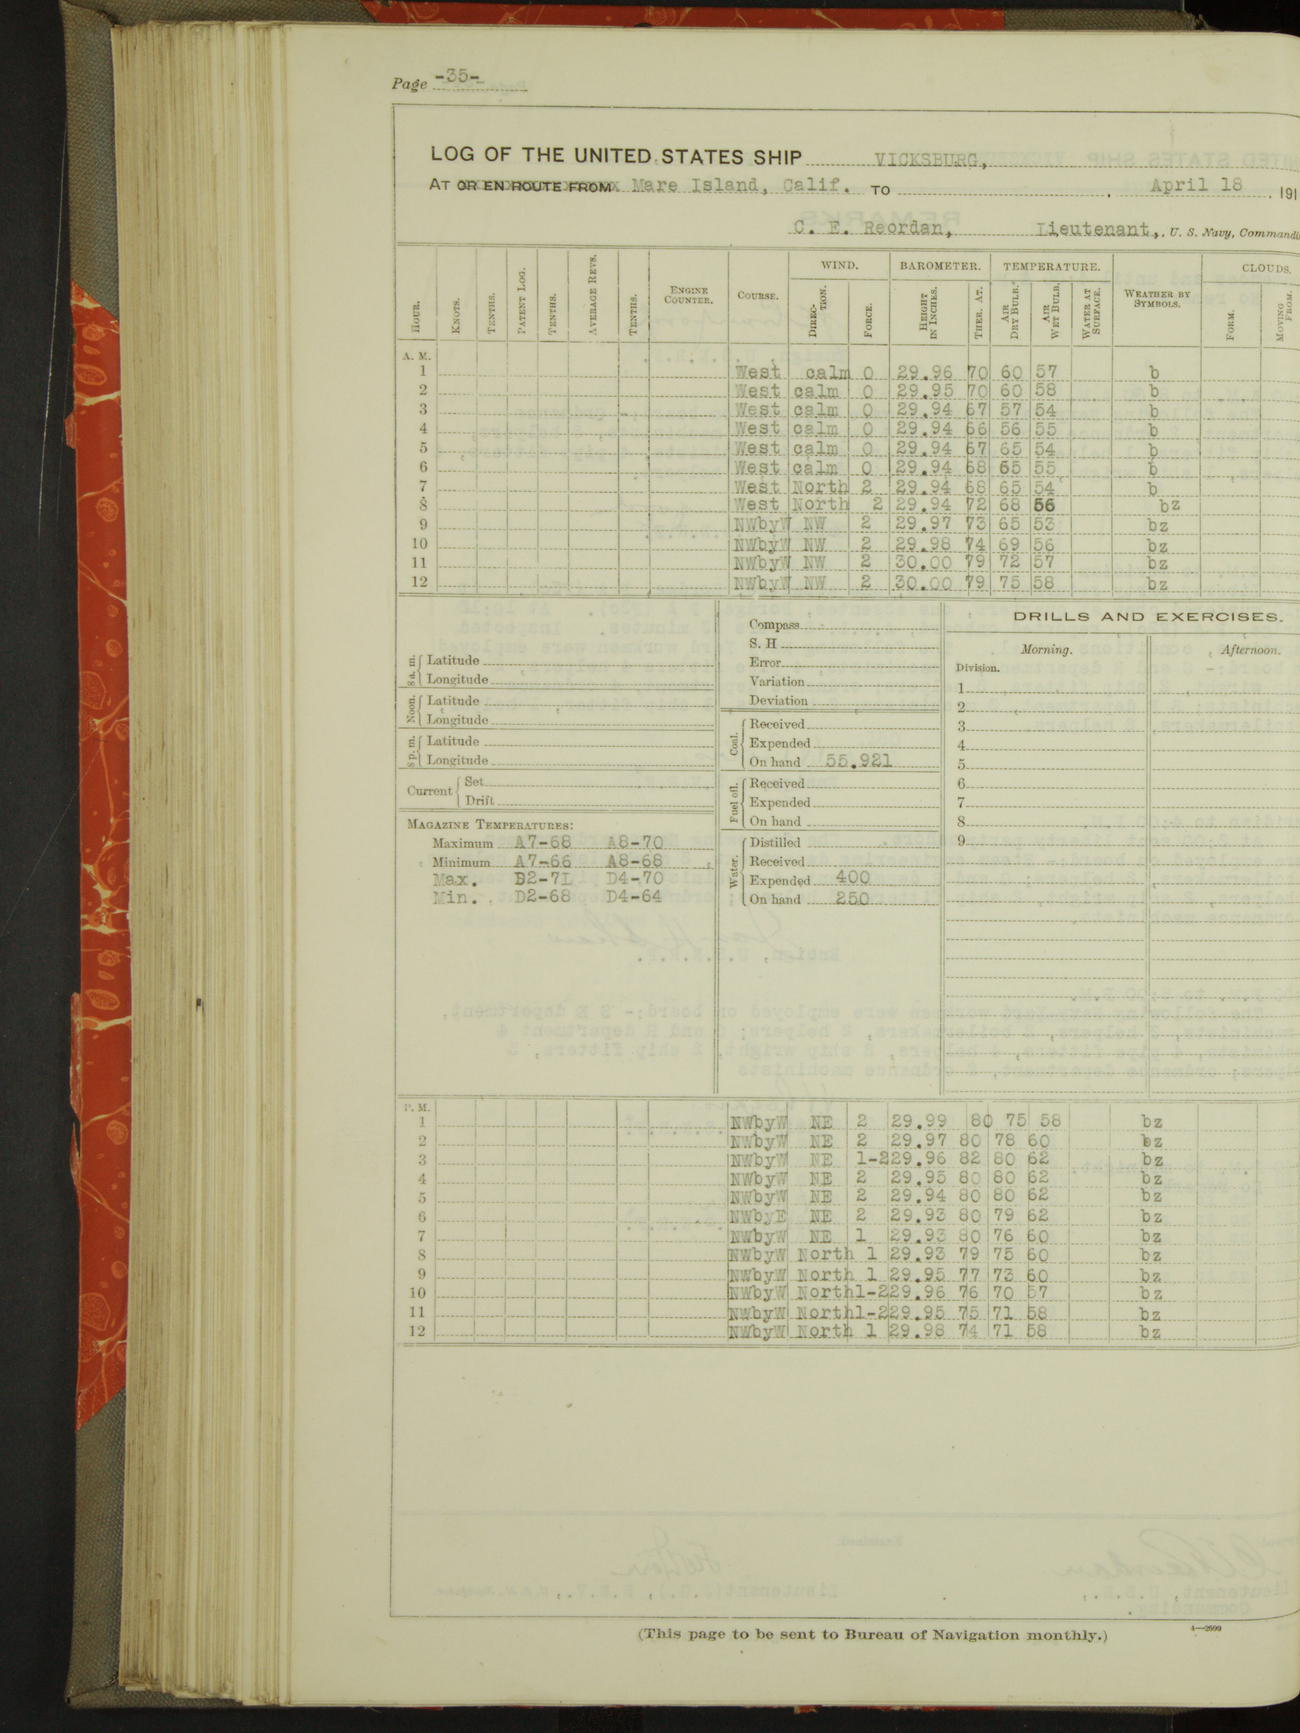 Page -35-
LOG OF THE UNITED STATES SHIP VICKSBURG,
AT OR EN ROUTE FROM Mare Island, Calif. TO , April 18, 191
C. E. Reordan, Lieutenant, U. S. Navy, Commandi
HOUR. KNOTS. TENTHS. PATENT LOG. TENTHS. AVERAGE REVS. TENTHS. ENGINE COUNTER. COURSE. WIND. DIRECTION. FORCE. BAROMETER. HEIGHT IN INCHES. THER. AT. TEMPERATURE. AIR DRY BULB. AIR WET BULB. WATER AT SURFACE. WEATHER BY SYMBOLS. CLOUDS. FORM. MOVING FROM.
A. M.
1 West calm 0 29.96 70 60 57 b
2 West calm 0 29.95 70 60 58 b
3 West calm 0 29.94 67 57 54 b
4 West calm 0 29.94 66 56 55 b
5 West calm 0 29.94 67 65 54 b
6 West calm 0 29.94 68 65 55 b
7 West North 2 29.94 68 65 54 b
8 West North 2 29.94 72 68 56 bz
9 NWbyW NW 2 29.97 73 65 53 bz
10 NWbyW NW 2 29.98 74 69 56 bz
11 NWbyW NW 2 30.00 79 72 57 bz
12 NWbyW NW 2 30.00 79 75 58 bz
8 a. m. Latitude
Longitude
Noon. Latitude
Longitude
8 p. m. Latitude
Longitude
Current Set
Drift
MAGAZINE TEMPERATURES:
Maximum A7-68 A8-70
Minimum A7-66 A8-68
Max. D4-70
Min. D2-68 D4-64
Compass
S. H
Error
Variation
Deviation
Coal. Received
Expended
On hand 55.921
Fuel oil. Received
Expended
On hand
Water. Distilled
Received
Expended 400
On hand 250
DRILLS AND EXERCISES.
Morning. Afternoon.
Division.
1
2
3
4
5
6
7
8
9
P. M.
1 NWbyW NE 2 29.99 80 75 58 bz
2 NWbyW NE 2 29.97 80 78 60 bz
3 NWbyW NE 1-2 29.96 82 80 62 bz
4 NWbyW NE 2 29.95 80 80 62 bz
5 NWbyW NE 2 29.94 80 80 62 bz
6 NWbyE NE 2 29.93 80 79 62 bz
7 NWbyW NE 1 29.93 80 76 60 bz
8 NWbyW North 1 29.93 79 75 60 bz
9 NWbyW North 1 29.95 77 73 60 bz
10 NWbyW North 1-2 29.96 76 70 57 bz
11 NWbyW North 1-2 29.95 75 71 58 bz
12 NWbyW North 1 29.98 74 71 58 bz
(This page to be sent to Bureau of Navigation monthly.)